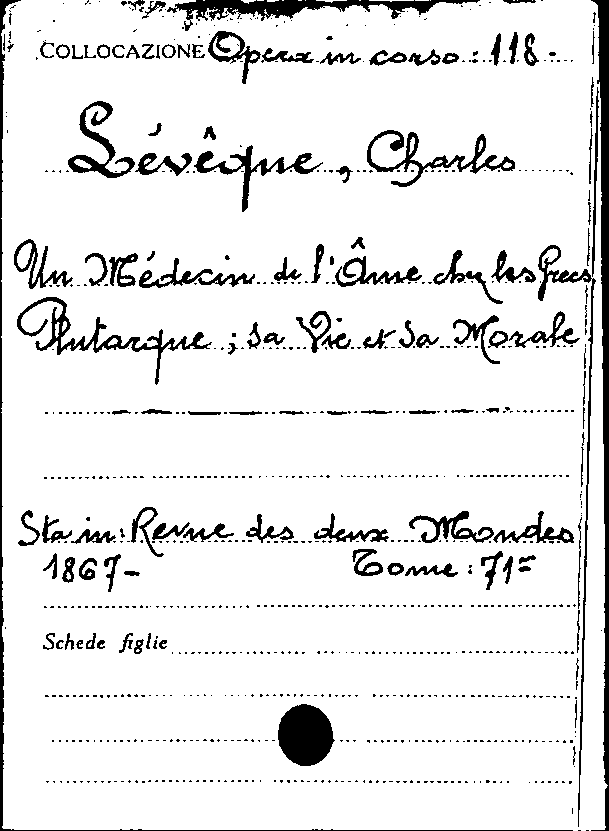 COLLOCAZIONE Opera in corso: 118-
Lévêque, Charles
Un Médecin de l'Âme chez les Grecs
Plutarque; sa Vie et sa Morale
Sta in: Revue des deux Mondes
1867- Tome: 71=
Schede figlie